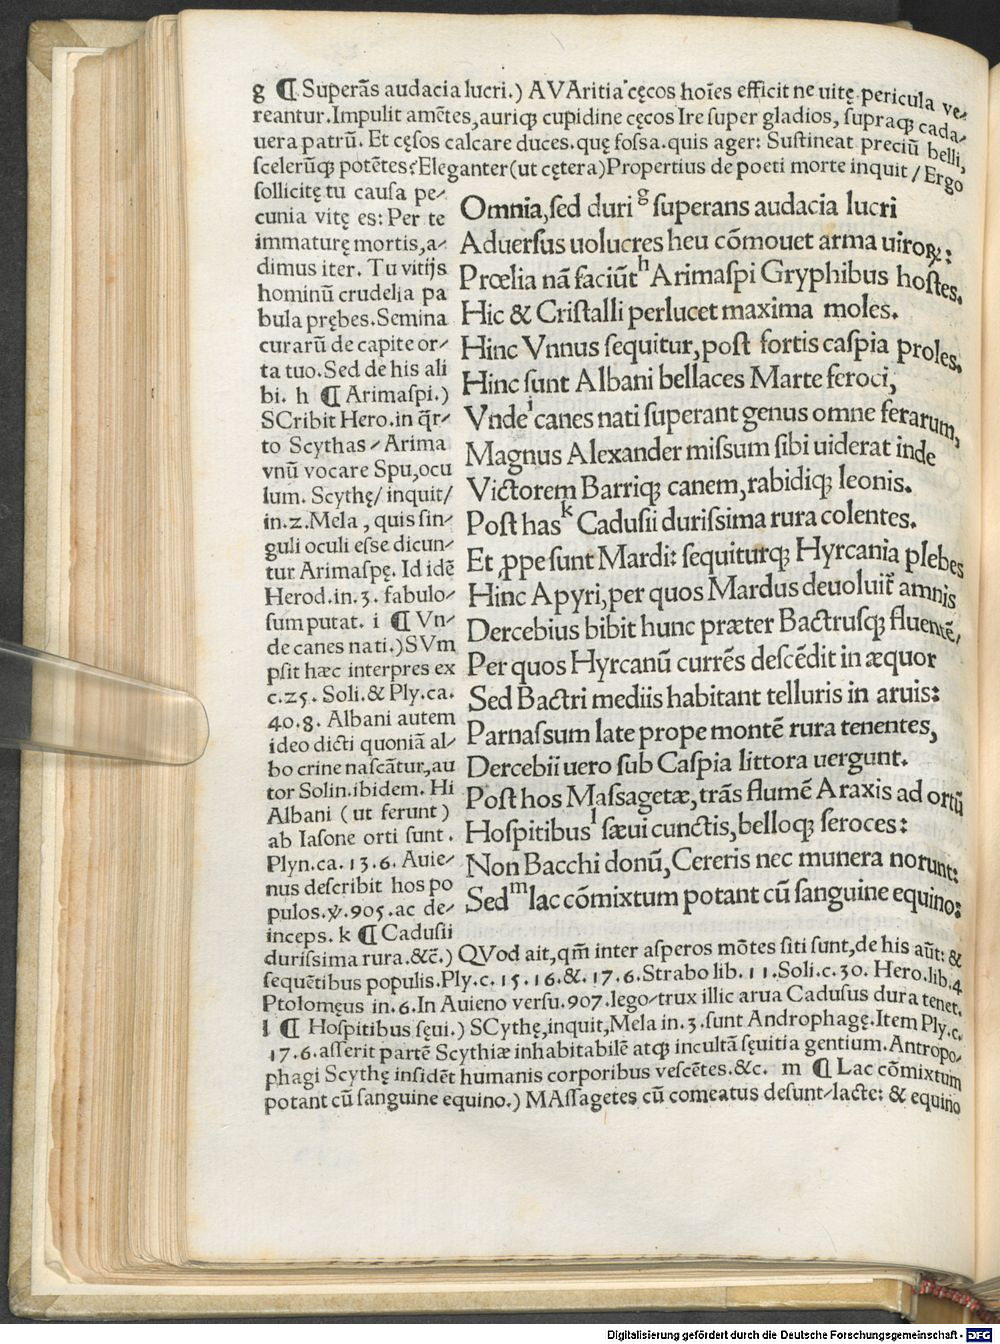 g ¶ Superãs audacia lucri.) AVAritia cęcos hoĩes efficit ne uitę pericula ve⸗
reantur. Impulit amẽtes, auriqꝫ cupidine cęcos Ire super gladios, supraqꝫ cada⸗
uera patrũ. Et cęsos calcare duces. quę fossa. quis ager: Sustineat preciũ belli,
scelerũqꝫ potẽtes? Eleganter (ut cętera) Propertius de poeti morte inquit / Ergo
sollicitę tu causa pe⸗
cunia vitę es: Per te
immaturę mortis, a⸗
dimus iter. Tu vitijs
hominũ crudelia pa
bula prębes. Semina
curarũ de capite or⸗
ta tuo. Sed de his ali
bi. h ¶ Arimaspi.)
SCribit Hero. in q̃r⸗
to Scythas ⸗ Arima
vnũ vocare Spu, ocu
lum. Scythę / inquit /
in. 2. Mela, quis sin⸗
guli oculi esse dicun⸗
tur Arimaspę. Id idẽ
Herod. in. 3. fabulo⸗
sum putat. i ¶ Vn⸗
de canes nati.) SVm
psit hæc interpres ex
c. 25. Soli. & Ply. ca.
40. 8. Albani autem
ideo dicti quoniã al⸗
bo crine nascãtur, au
tor Solin. ibidem. Hi
Albani (ut ferunt)
ab Iasone orti sunt.
Plyn. ca. 13. 6. Auie⸗
nus describit hos po
pulos. ꝟ. 905. ac de⸗
inceps. k ¶ Cadusii
Omnia, sed duri g superans audacia lucri
Aduersus uolucres heu cõmouet arma uiroꝝ:
Prœlia nã faciũt h Arimaspi Gryphibus hostes.
Hic & Cristalli perlucet maxima moles.
Hinc Vnnus sequitur, post fortis caspia proles.
Hinc sunt Albani bellaces Marte feroci,
Vnde i canes nati superant genus omne ferarum,
Magnus Alexander missum sibi uiderat inde
Victorem Barriqꝫ canem, rabidiqꝫ leonis.
Post has k Cadusii durissima rura colentes.
Et ꝓpe sunt Mardi: sequiturqꝫ Hyrcania plebes
Hinc Apyri, per quos Mardus deuoluit̃ amnis
Dercebius bibit hunc præter Bactrusqꝫ fluentẽ,
Per quos Hyrcanũ currẽs descẽdit in æquor
Sed Bactri mediis habitant telluris in aruis:
Parnassum late prope montẽ rura tenentes,
Dercebii uero sub Caspia littora uergunt.
Post hos Massagetæ, trãs flumẽ Araxis ad ortũ
Hospitibus l sæui cunctis, belloqꝫ feroces:
Non Bacchi donũ, Cereris nec munera norunt:
Sed m lac cõmixtum potant cũ sanguine equino:
durissima rura. &c̃.) QVod ait, qm̃ inter asperos mõtes siti sunt, de his aũt: &
sequẽtibus populis. Ply. c. 15. 16. &. 17. 6. Strabo lib. 11. Soli. c. 30. Hero. lib. 4
Ptolomęus in. 6. In Auieno versu. 907. lego⸗trux illic arua Cadusus dura tenet.
l ¶ Hospitibus sęui.) SCythę, inquit, Mela in. 3. sunt Androphagę. Item Ply. c.
17. 6. asserit partẽ Scythiæ inhabitabilẽ atqꝫ incultã sęuitia gentium. Antropo⸗
phagi Scythę insidẽt humanis corporibus vescẽtes. &c. m ¶ Lac cõmixtum
potant cũ sanguine equino.) MAssagetes cũ comeatus desunt⸗lacte: & equino
Digitalisierung gefördert durch die Deutsche Forschungsgemeinschaft - DFG